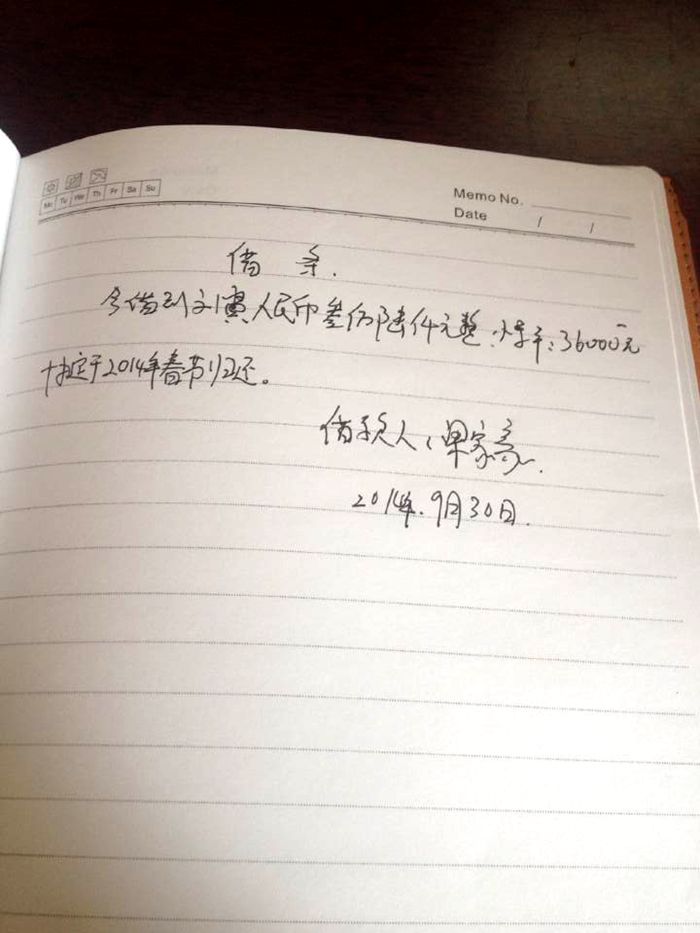 Mo Tu We Th Fr Sa Su
Memo No.
Date / /
借 条.
今借到刘演人民币叁万陆仟元整.小写:36000元
拟定于2014年春节归还。
借款人:梁家豪.
2014年.9月30日.